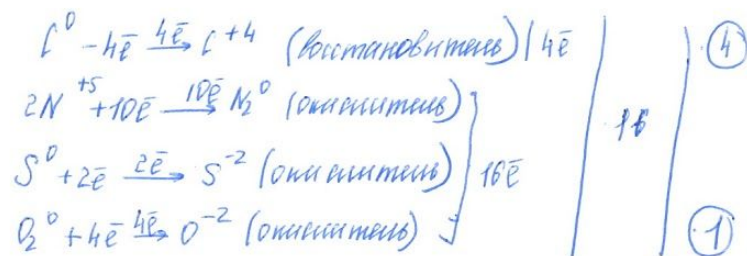 C⁰ - 4ē 4ē→ C⁺⁴ (восстановитель) | 4ē | | ④
2N⁺⁵ + 10ē 10ē→ N₂⁰ (окислитель)
16
S⁰ + 2ē 2ē→ S⁻² (окислитель) ] 16ē
O₂⁰ + 4ē 4ē→ O⁻² (окислитель) ①